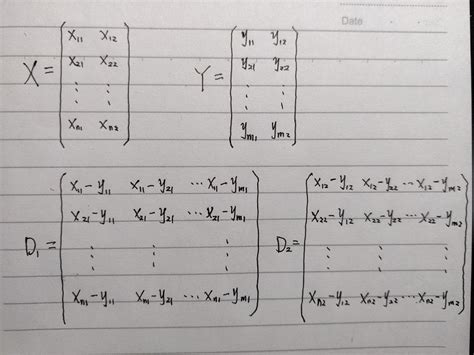 Date
X = ( x₁₁ x₁₂
x₂₁ x₂₂
⋮ ⋮
xₙ₁ xₙ₂ )
Y = ( y₁₁ y₁₂
y₂₁ y₂₂
⋮ ⋮
yₘ₁ yₘ₂ )
D₁ = ( x₁₁-y₁₁ x₁₁-y₂₁ ⋯ x₁₁-yₘ₁
x₂₁-y₁₁ x₂₁-y₂₁ ⋯ x₂₁-yₘ₁
⋮ ⋮ ⋮
xₙ₁-y₁₁ xₙ₁-y₂₁ ⋯ xₙ₁-yₘ₁ )
D₂ = ( x₁₂-y₁₂ x₁₂-y₂₂ ⋯ x₁₂-yₘ₂
x₂₂-y₁₂ x₂₂-y₂₂ ⋯ x₂₂-yₘ₂
⋮ ⋮ ⋮
xₙ₂-y₁₂ xₙ₂-y₂₂ ⋯ xₙ₂-yₘ₂ )